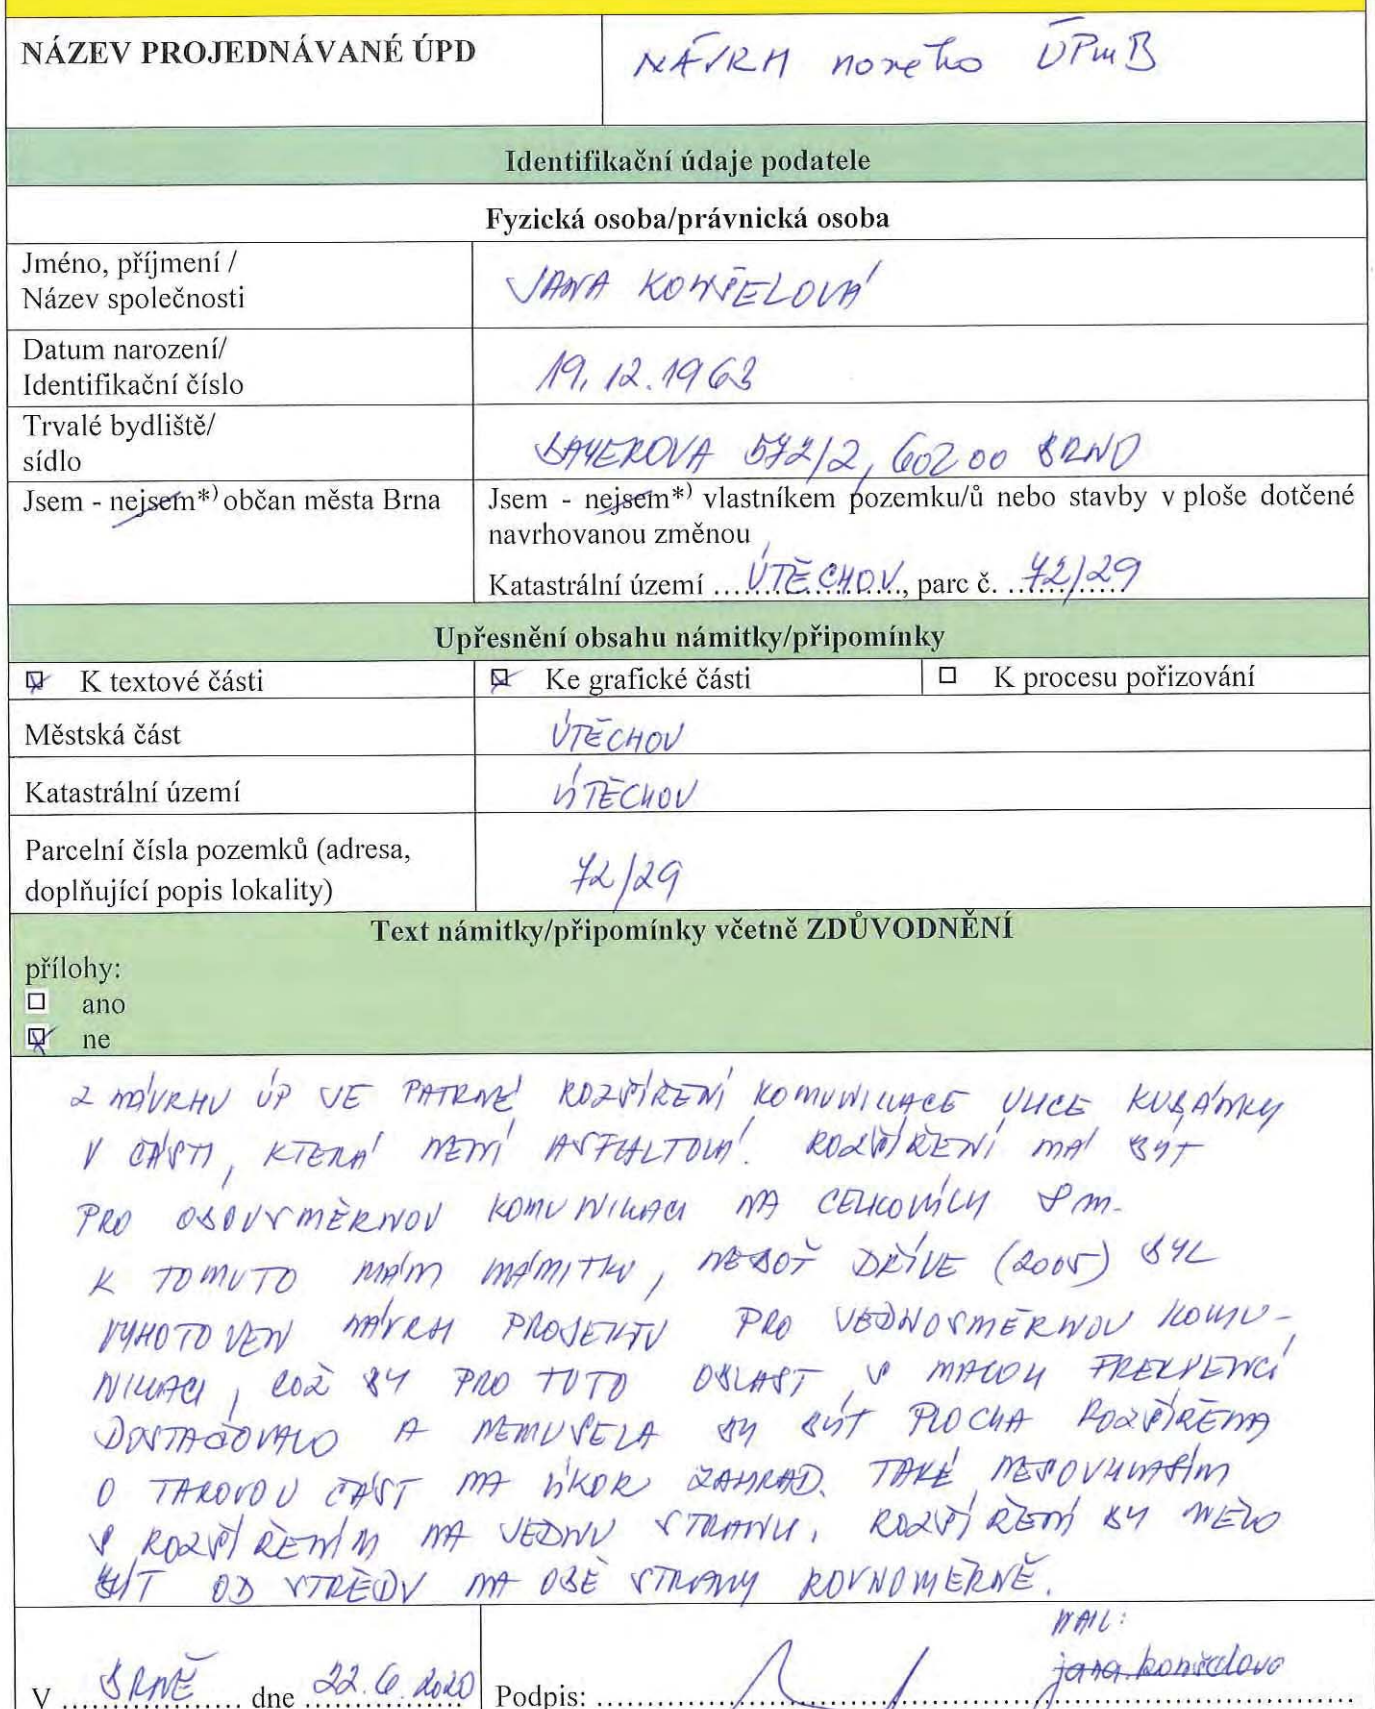 NÁZEV PROJEDNÁVANÉ ÚPD
NÁVRH nového ÚPmB
Identifikační údaje podatele
Fyzická osoba/právnická osoba
Jméno, příjmení /
Název společnosti
JANA KONŠELOVÁ
Datum narození/
Identifikační číslo
19. 12. 1963
Trvalé bydliště/
sídlo
BAYEROVA 572/2, 602 00 BRNO
Jsem - nejsem*) občan města Brna
Jsem - nejsem*) vlastníkem pozemku/ů nebo stavby v ploše dotčené
navrhovanou změnou
Katastrální území ... ÚTĚCHOV, parc č. ... 72/29
Upřesnění obsahu námitky/připomínky
K textové části
Ke grafické části
K procesu pořizování
Městská část
ÚTĚCHOV
Katastrální území
ÚTĚCHOV
Parcelní čísla pozemků (adresa,
doplňující popis lokality)
72/29
Text námitky/připomínky včetně ZDŮVODNĚNÍ
přílohy:
ano
ne
Z NÁVRHU ÚP JE PATRNÉ ROZŠÍŘENÍ KOMUNIKACE ULICE KUBÁNKY
V ČÁSTI, KTERÁ NENÍ ASFALTOVÁ. ROZŠÍŘENÍ MÁ BÝT
PRO OBOUSMĚRNOU KOMUNIKACI NA CELKOVÝCH 8 m.
K TOMUTO MÁM NÁMITKU, NEBOŤ DŘÍVE (2005) BYL
VYHOTOVEN NÁVRH PROJEKTU PRO JEDNOSMĚRNOU KOMU-
NIKACI, COŽ BY PRO TUTO OBLAST S MALOU FREKVENCÍ
DOSTAČOVALO A NEMUSELA BY BÝT PLOCHA ROZŠÍŘENA
O TAKOVOU ČÁST NA ÚKOR ZAHRAD. TAKÉ NESOUHLASÍM
S ROZŠÍŘENÍM NA JEDNU STRANU. ROZŠÍŘENÍ BY MĚLO
BÝT OD STŘEDU NA OBĚ STRANY ROVNOMĚRNĚ.
MAIL:
jana.konselova
V ... BRNĚ ... dne 22.6.2020
Podpis: